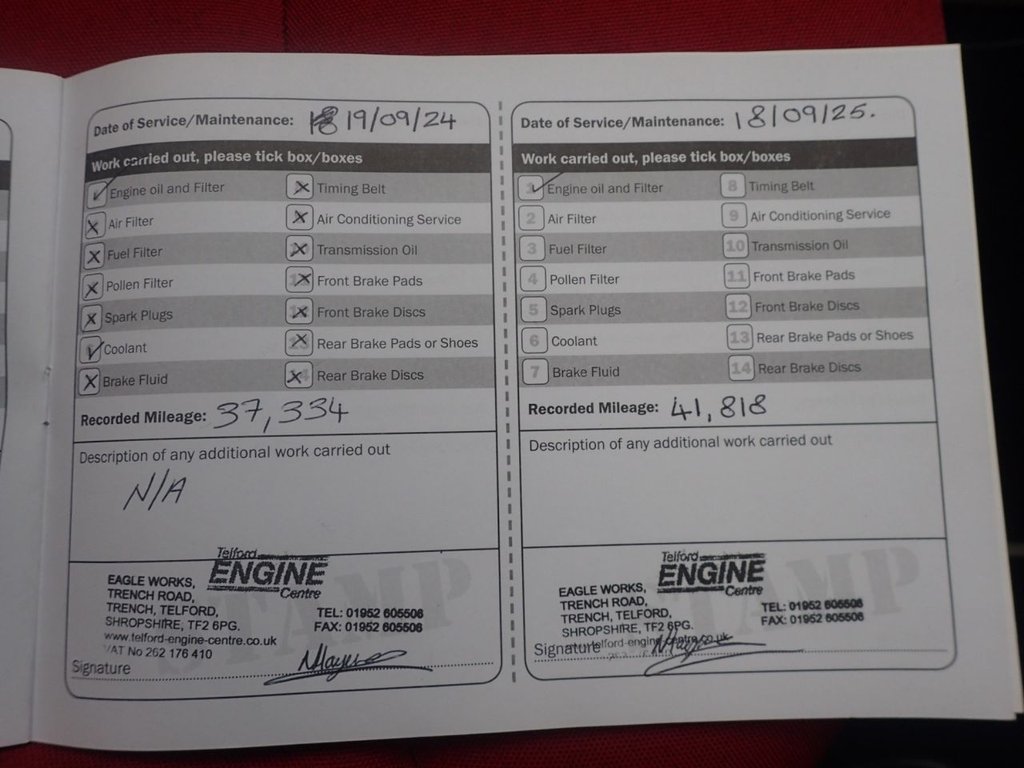 Date of Service/Maintenance: 19/09/24
Work carried out, please tick box/boxes
✓ Engine oil and Filter
X Timing Belt
X Air Filter
X Air Conditioning Service
X Fuel Filter
X Transmission Oil
X Pollen Filter
X Front Brake Pads
X Spark Plugs
X Front Brake Discs
✓ Coolant
X Rear Brake Pads or Shoes
X Brake Fluid
X Rear Brake Discs
Recorded Mileage: 37,334
Description of any additional work carried out
N/A
STAMP
Telford
ENGINE
Centre
EAGLE WORKS,
TRENCH ROAD,
TRENCH, TELFORD,
SHROPSHIRE, TF2 6PG.
www.telford-engine-centre.co.uk
VAT No 262 176 410
TEL: 01952 605506
FAX: 01952 605506
Signature
Date of Service/Maintenance: 18/09/25.
Work carried out, please tick box/boxes
✓ Engine oil and Filter
8 Timing Belt
2 Air Filter
9 Air Conditioning Service
3 Fuel Filter
10 Transmission Oil
4 Pollen Filter
11 Front Brake Pads
5 Spark Plugs
12 Front Brake Discs
6 Coolant
13 Rear Brake Pads or Shoes
7 Brake Fluid
14 Rear Brake Discs
Recorded Mileage: 41,818
Description of any additional work carried out
STAMP
Telford
ENGINE
Centre
EAGLE WORKS,
TRENCH ROAD,
TRENCH, TELFORD,
SHROPSHIRE, TF2 6PG.
TEL: 01952 605506
FAX: 01952 605506
Signature